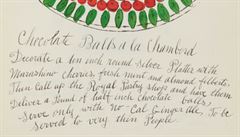 Chocolate Balls a la Chambord
Decorate a ten inch round silver Platter with
Maraschino cherries, fresh mint and almond filberts.
Then call up the Royal Pastry shop and have them
deliver a Pound of half inch chocolate balls.
Serve only with no-Cal Gingerale, To be
served to very thin People